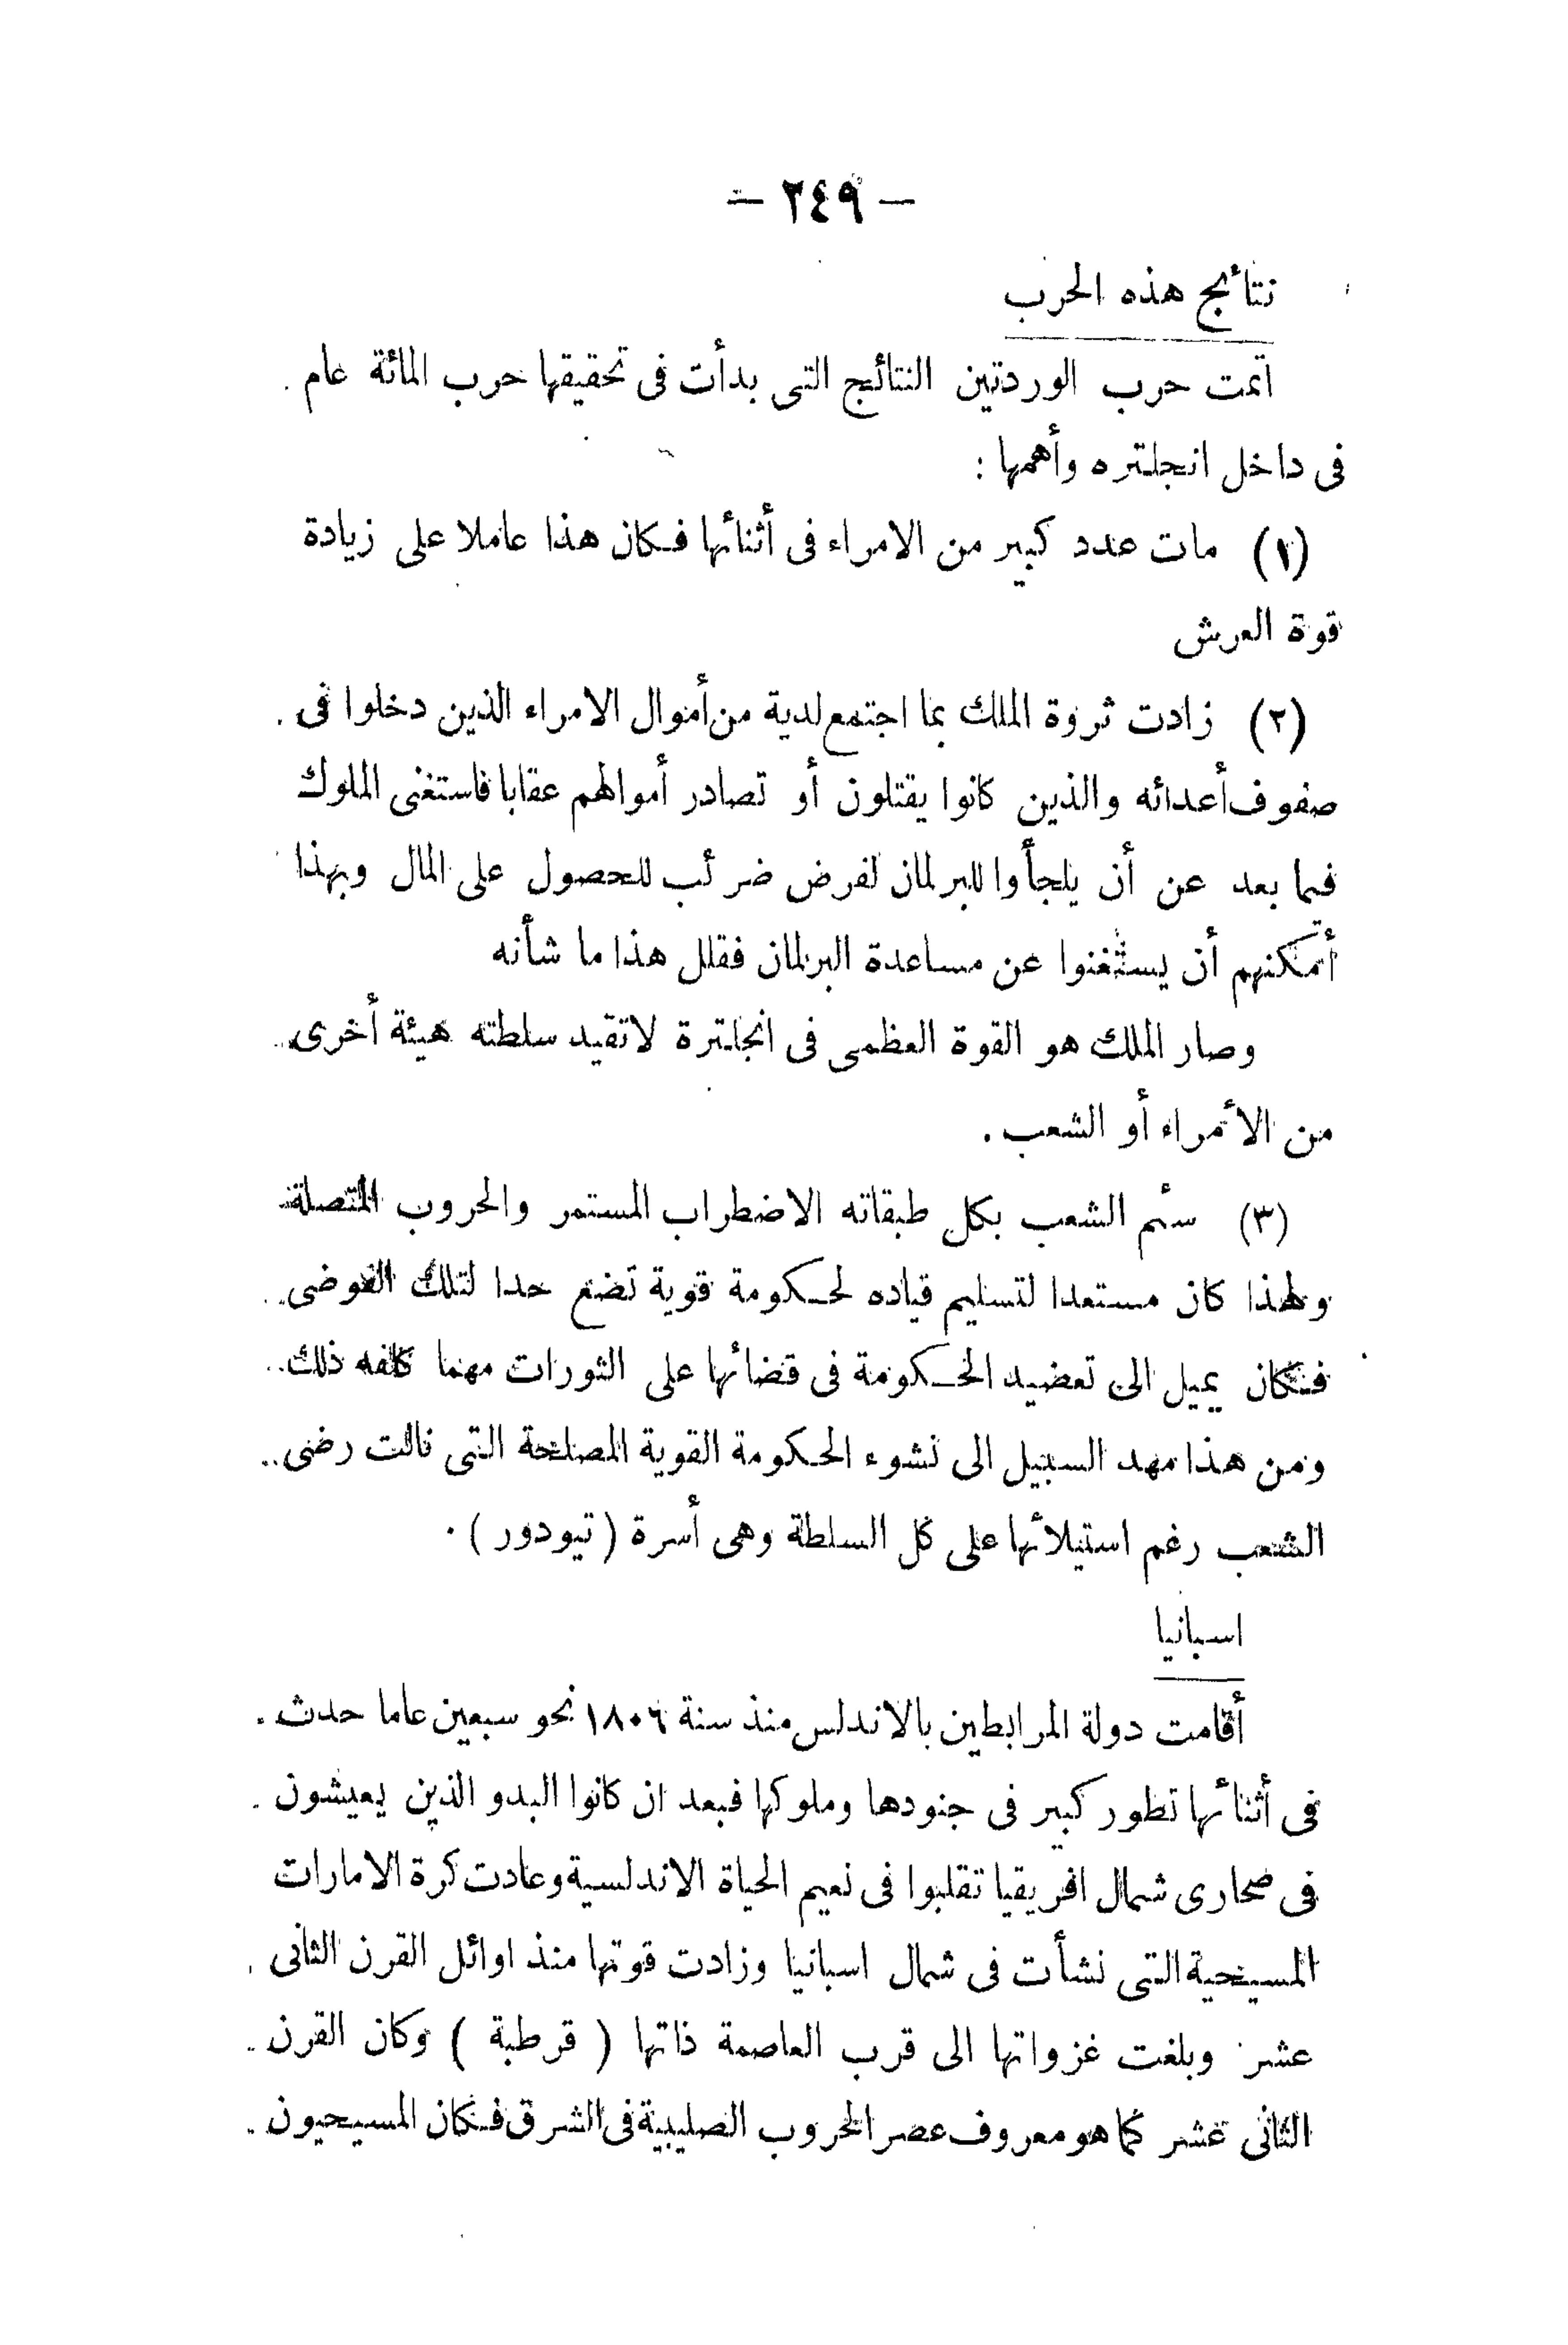 — ٢٤٩ —
نتائج هذه الحرب
أتمت حرب الوردتين النتائج التى بدأت فى تحقيقها حرب المائة عام
فى داخل انجلتره وأهمها :
(١) مات عدد كبير من الامراء فى أثنائها فكان هذا عاملا على زيادة
قوة العرش
(٢) زادت ثروة الملك بما اجتمع لدية من أموال الامراء الذين دخلوا فى
صفوف أعدائه والذين كانوا يقتلون أو تصادر أموالهم عقابا فاستغنى الملوك
فيما بعد عن أن يلجأوا للبرلمان لفرض ضرئب للحصول على المال وبهذا
أمكنهم أن يستغنوا عن مساعدة البرلمان فقلل هذا ما شأنه
وصار الملك هو القوة العظمى فى انجلترة لاتقيد سلطته هيئة أخرى
من الأمراء أو الشعب .
(٣) سئم الشعب بكل طبقاته الاضطراب المستمر والحروب المتصلة
ولهذا كان مستعدا لتسليم قياده لحكومة قوية تضع حدا لتلك الفوضى
فكان يميل الى تعضيد الحكومة فى قضائها على الثورات مهما كلفه ذلك
ومن هذا مهد السبيل الى نشوء الحكومة القوية المصلحة التى نالت رضى
الشعب رغم استيلائها على كل السلطة وهى أسرة ( تيودور ) .
اسبانيا
أقامت دولة المرابطين بالاندلس منذ سنة ١٨٠٦ نحو سبعين عاما حدث
فى أثنائها تطور كبير فى جنودها وملوكها فبعد ان كانوا البدو الذين يعيشون
فى صحارى شمال افريقيا تقلبوا فى نعيم الحياة الاندلسية وعادت كرة الامارات
المسيحية التى نشأت فى شمال اسبانيا وزادت قوتها منذ اوائل القرن الثانى
عشر وبلغت غزواتها الى قرب العاصمة ذاتها ( قرطبة ) وكان القرن
الثانى عشر كما هو معروف عصر الحروب الصليبية فى الشرق فكان المسيحيون